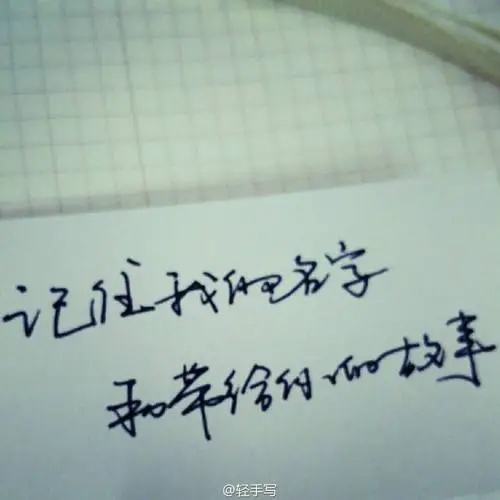 记住我的名字
和带给你的故事
@轻手写